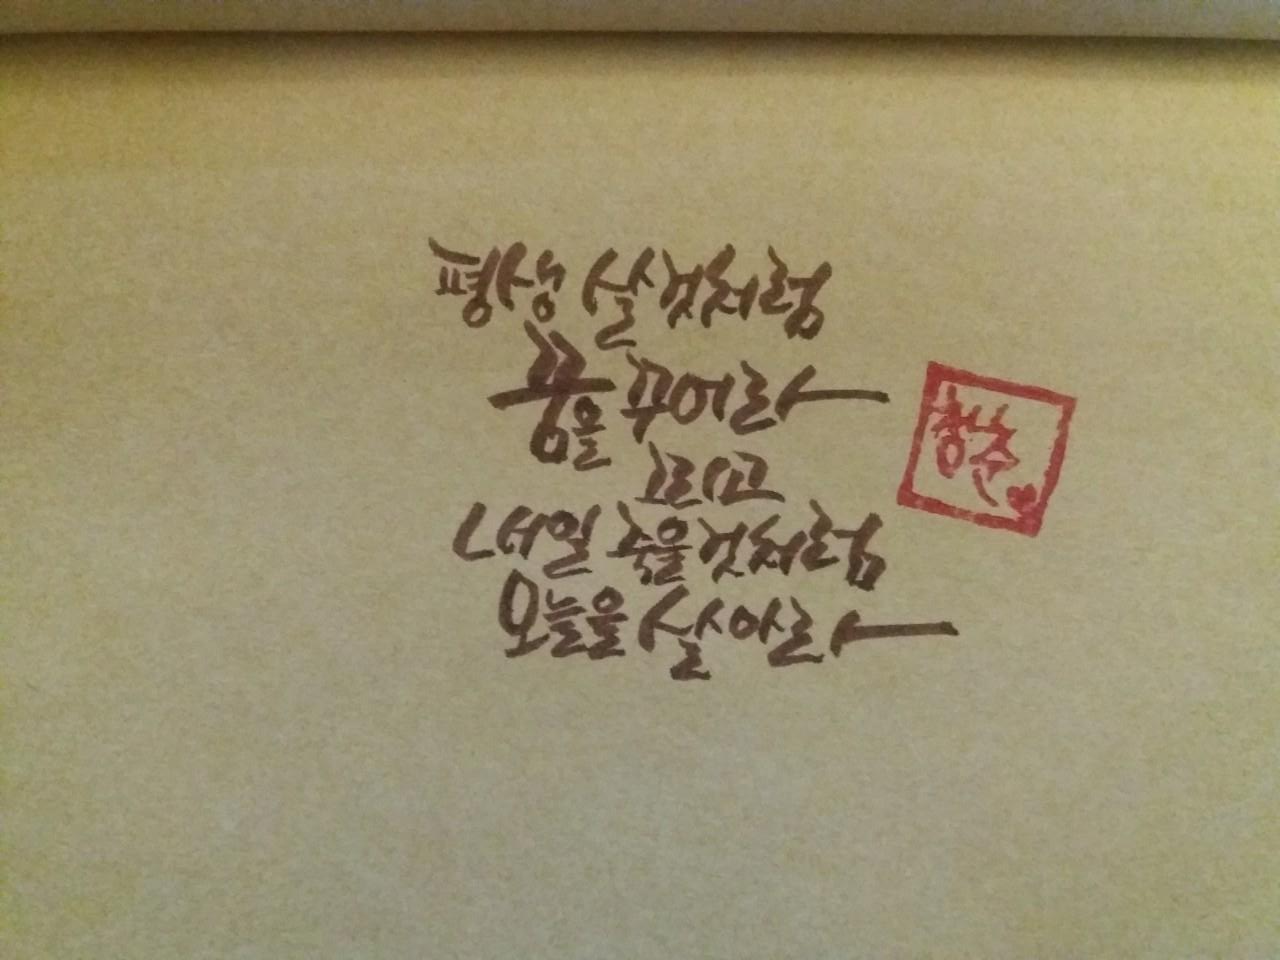 평생 살것처럼
꿈을 꾸어라
그리고
내일 죽을것처럼
오늘을 살아라
청춘